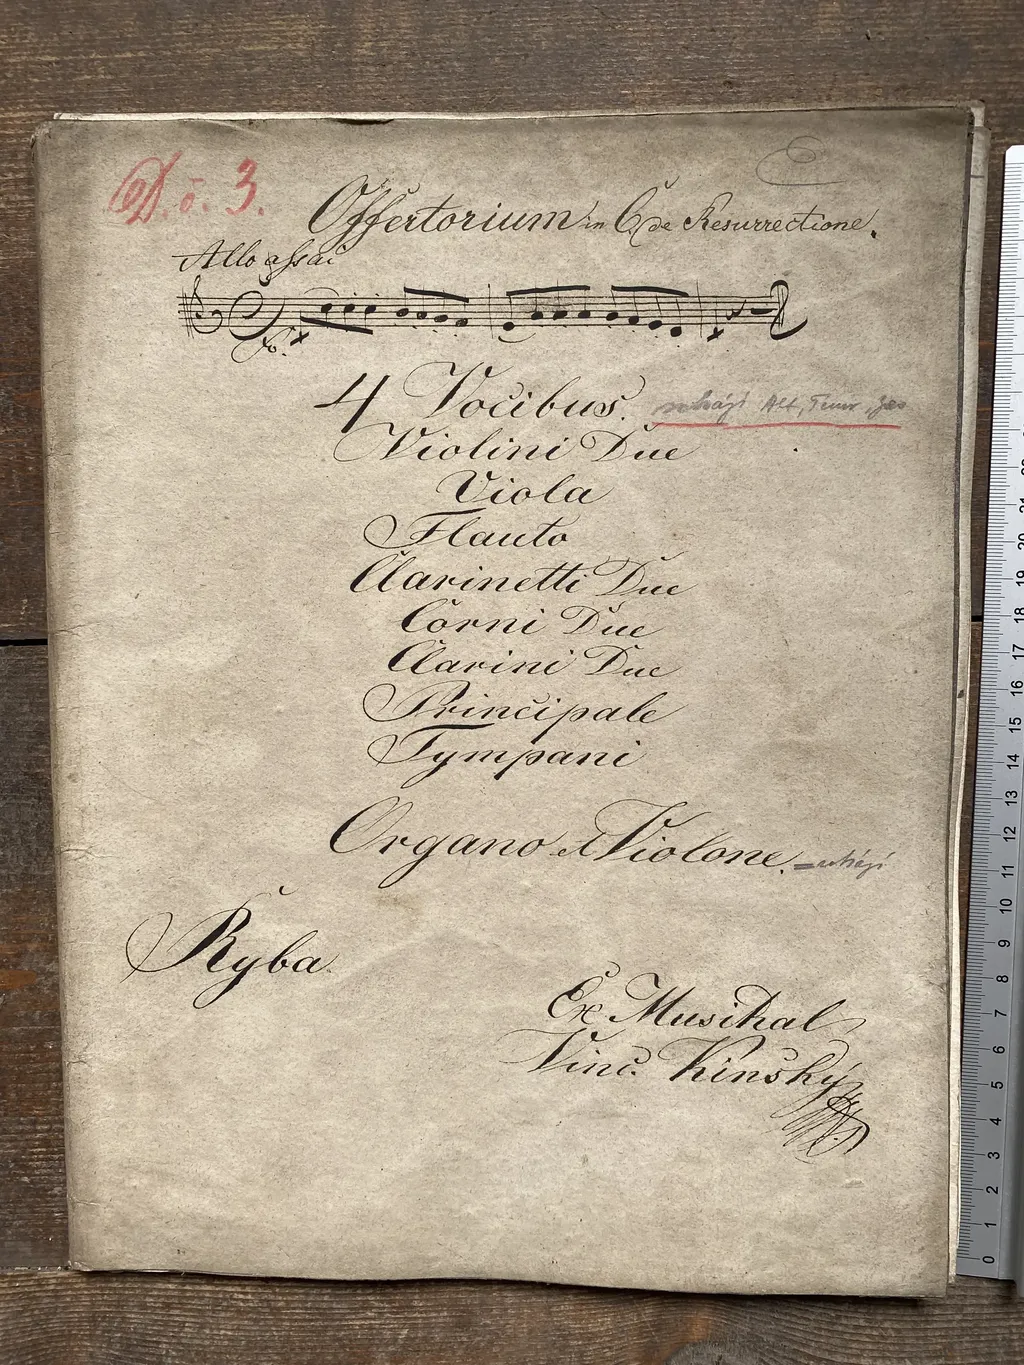 D. č. 3.
Offertorium in C de Resurrectione.
Allo assai
fo.
4 Vocibus. schází Alt, Tenor,
Violini Due
Viola
Flauto
Clarinetti Due
Corni Due
Clarini Due
Principale
Tympani
Organo et Violone. schází
Ryba.
Ex Musikal
Vinc. Kinský
0 1 2 3 4 5 6 7 8 9 10 11 12 13 14 15 16 17 18 19 20 21